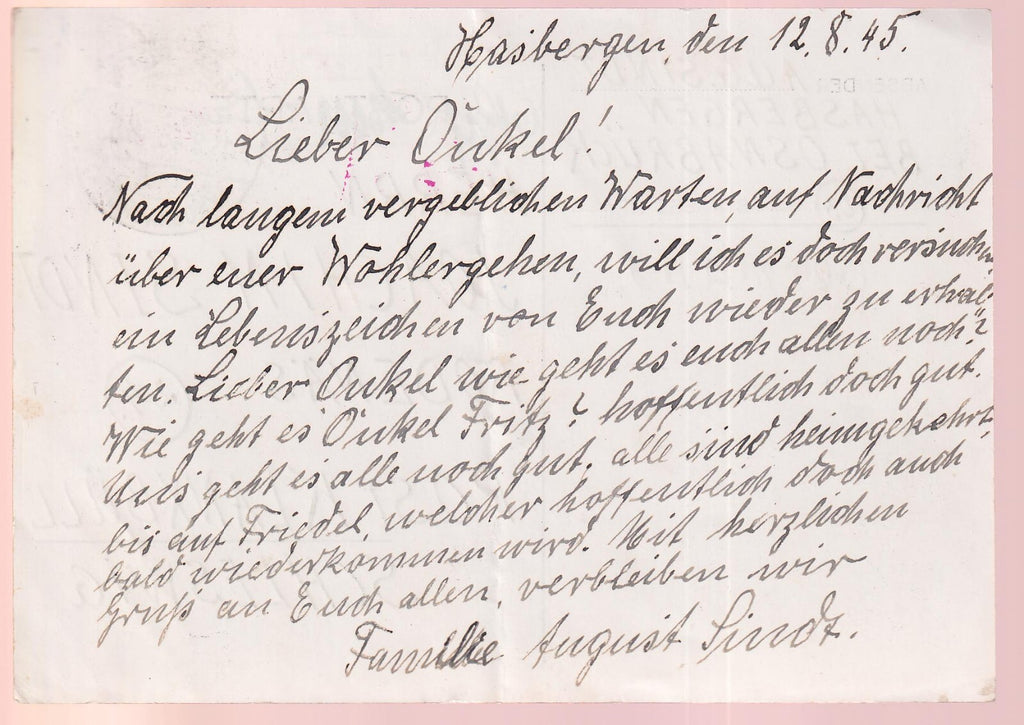 Hasbergen, den 12.8.45.
Lieber Onkel!
Nach langem vergeblichen Warten, auf Nachricht
über euer Wohlergehen, will ich es doch versuchen,
ein Lebenszeichen von Euch wieder zu erhal-
ten. Lieber Onkel wie geht es euch allen noch?
Wie geht es Onkel Fritz? hoffentlich doch gut.
Uns geht es alle noch gut. alle sind heimgekehrt,
bis auf Friedel, welcher hoffentlich doch auch
bald wiederkommen wird. Mit herzlichen
Gruß an Euch allen, verbleiben wir
Familie August Sindt.